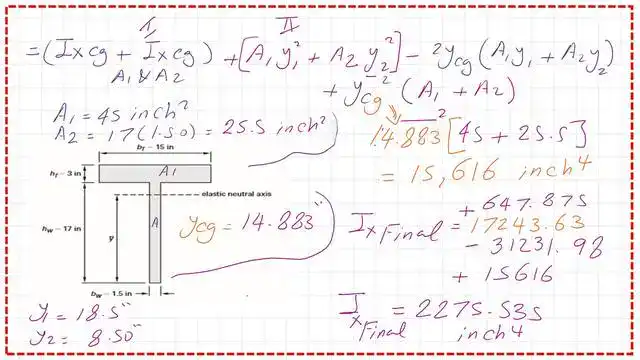 I II
= (Ixcg + Ixcg) + [A₁y₁² + A₂y₂²] - 2ycg (A₁y₁ + A₂y₂)
A₁ & A₂
+ ȳcg² (A₁ + A₂)
A₁ = 45 inch²
A₂ = 17(1.50) = 25.5 inch²
14.883² [45 + 25.5]
= 15,616 inch⁴
bf – 15 in
hf – 3 in
A₁
elastic neutral axis
hw – 17 in
y
A
bw – 1.5 in
ycg = 14.883"
Ix Final = + 647.875
17243.63
- 31231.98
+ 15616
y₁ = 18.5"
y₂ = 8.50"
Ix Final = 2275.535 inch⁴